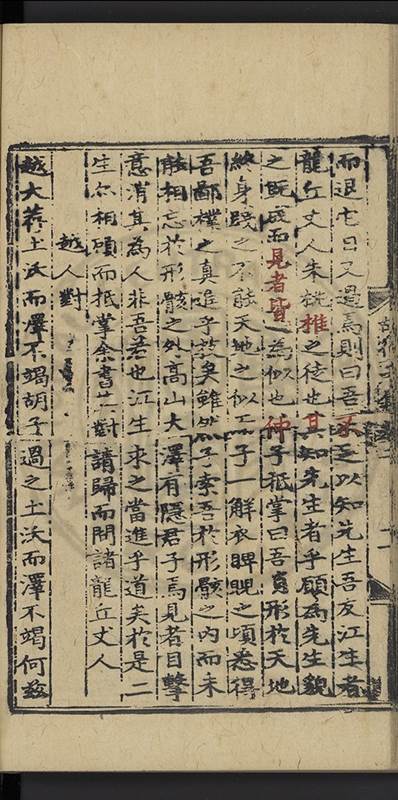 而退它日又過焉則曰吾不足以知先生吾友江生者
龍丘丈人朱推之徒也其知先生者乎願為先生貌
之既成而見者皆為似也仲子抵掌曰吾負形於天地
終身踐之不能天地之似工子一解衣睥睨之頃悉得
吾鄙樸之真進乎技矣雖然子索吾於形骸之內而未
能相忘於形骸之外高山大澤有隱君子焉見若目擊
意消其為人非吾若也江生求之當進乎道矣於是二
生尒相頋而抵掌余書其對請歸而問諸龍丘丈人
越人對
越大荐土沃而澤不竭胡子過之土沃而澤不竭何茲